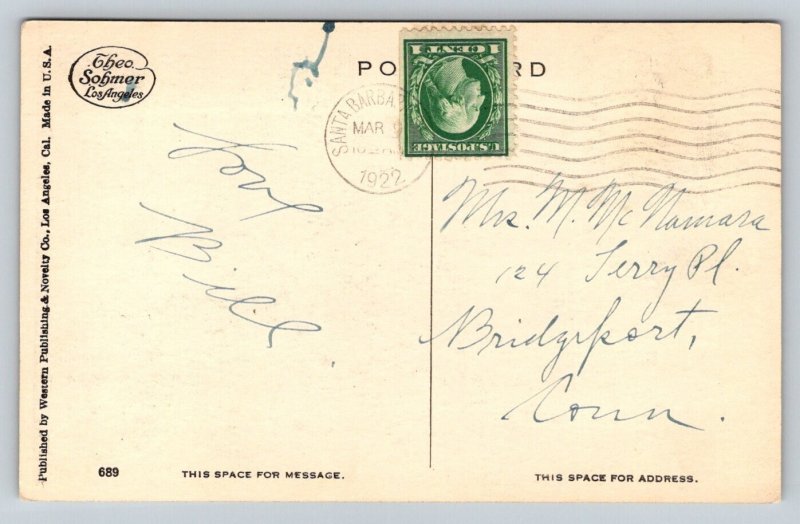 Theo.
Sohmer
Los Angeles
PO RD
1 CENT 1
U.S. POSTAGE
SANTA BARBA
MAR
1922
Love
Bill
Mrs. M. McNamara
124 Terry Pl.
Bridgeport,
Conn.
Published by Western Publishing & Novelty Co., Los Angeles, Cal. Made in U.S.A.
689
THIS SPACE FOR MESSAGE.
THIS SPACE FOR ADDRESS.